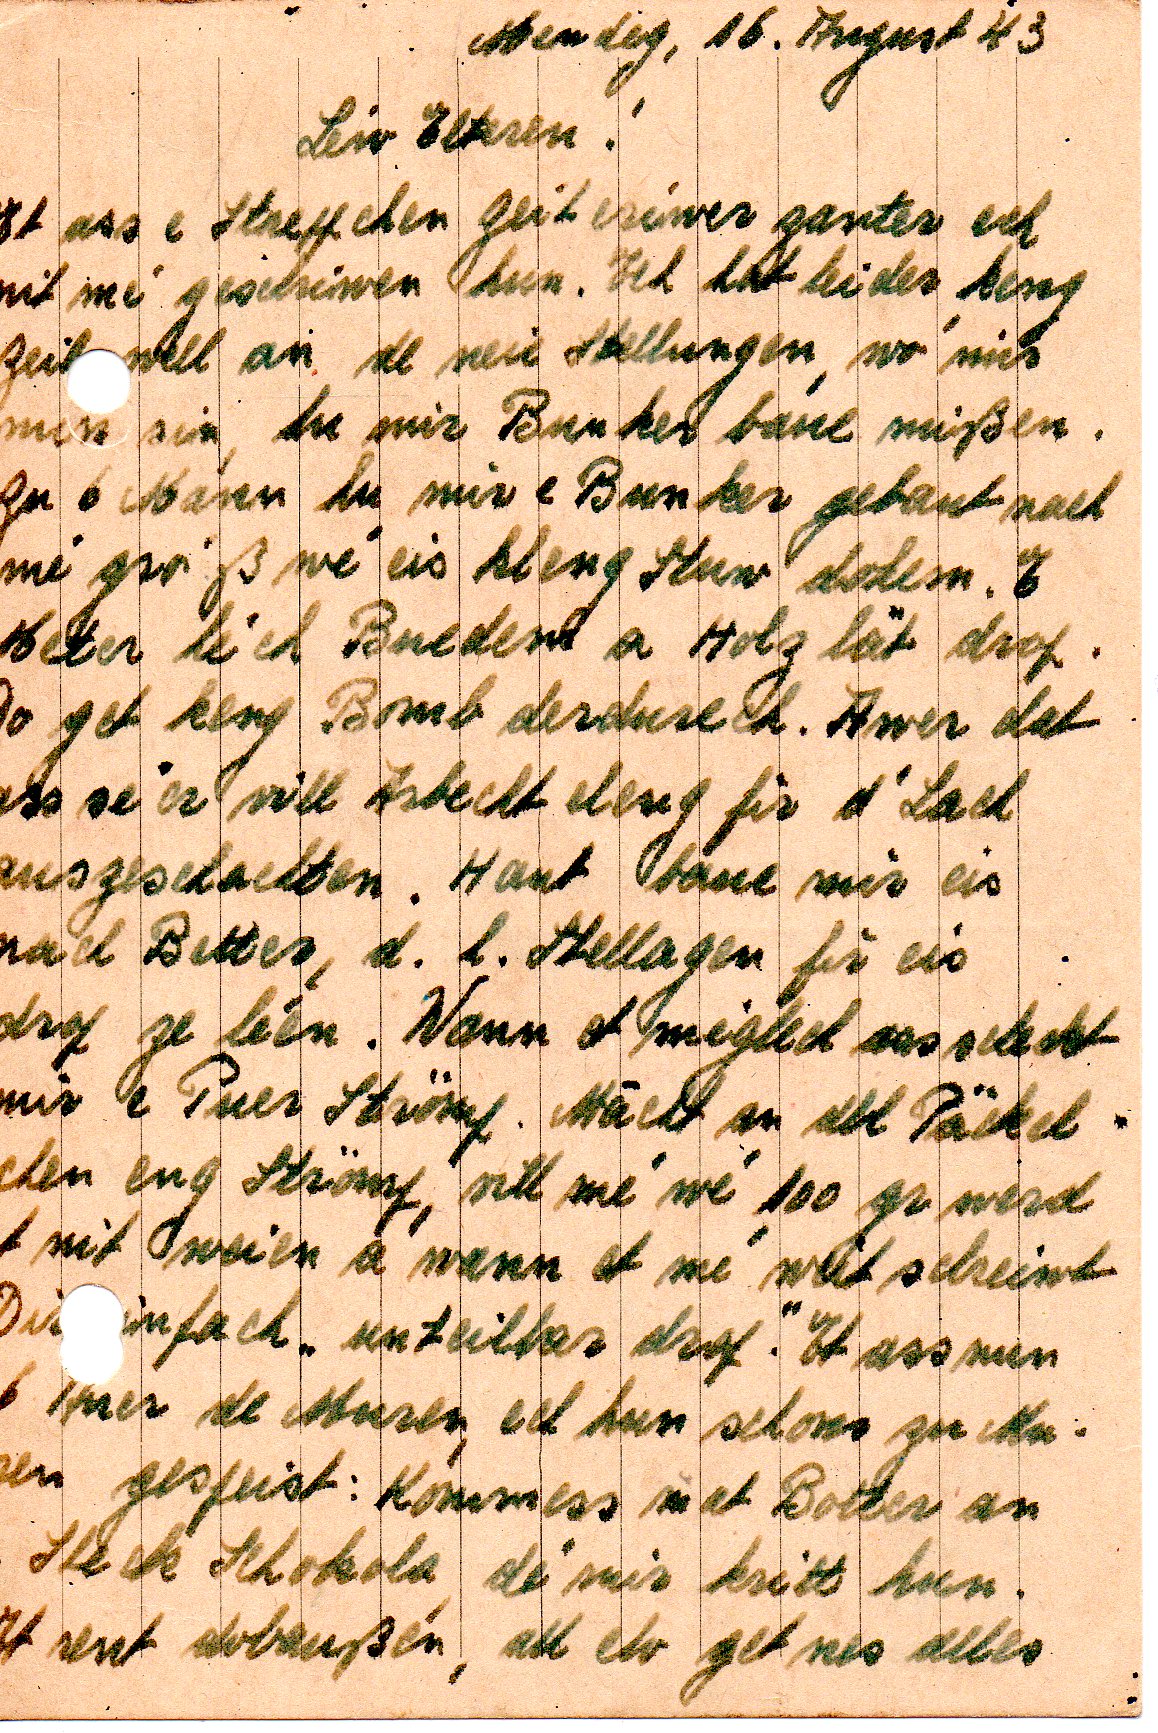 Mendeg, 16. August 43
Leiw Elteren!
Et ass e Streffchen Zeit eriwer zanter ech
nit mé geschriwen hun. Ech hat leider keng
Zeit well an de neie Stellungen, wo' mir
nun sin, hu mir Bunker baue mißen.
Zu 6 Mann hu mir e Bunker gebaut nach
mé gro'ß wé eis kleng Stuw dohem. E
Meter héch Buedem a Holz lät drop.
Do get keng Bomb derdurech. Awer dat
ass se'er vill Arbecht eleng fir d'Lach
ausgeschachten. Haut baue mir eis
nach Better, d. h. Stellagen fir eis
drop ze léen. Wann et méiglech ass schéckt
mir e Puer Strömp. Mächt an all Päckel-
chen eng Strömp, vill mé wé 100 gr werd
t nit weien a wann et mé weit schreiwt
Dir einfach „unteilbar drop." Et ass nun
6 Auer de Muren, ech hun schons zu Mu-
gen gespeist: Kommess mat Botter an
Steck Schokola dé mir kritt hun.
Et rent dobaußen, all elo get nes alles